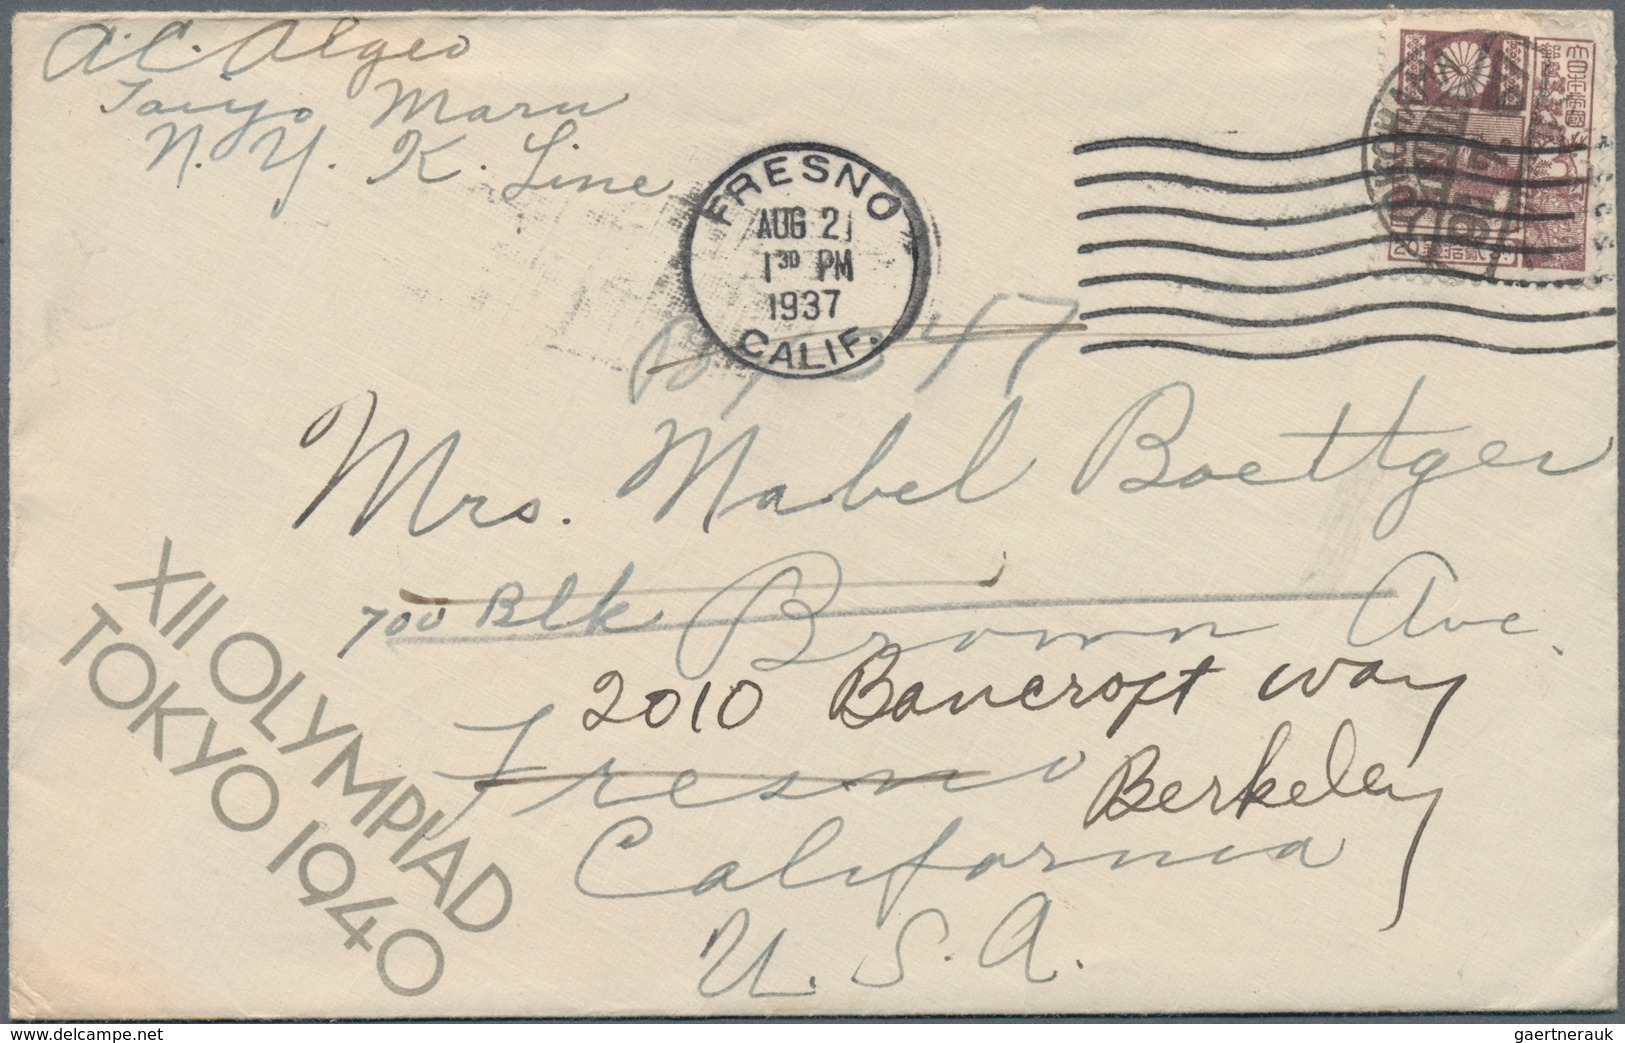 A. C. Algeo
Taiyo Maru
N. Y. K. Line
FRESNO
AUG 21
1 30 PM
1937
CALIF.
大日本帝國郵便
20
YOKOHAMA
Mrs. Mabel Boettger
700 Blk Brown Ave.
2010 Bancroft Way
Fresno
Berkeley
California
U. S. A.
XII OLYMPIAD
TOKYO 1940
© www.delcampe.net
gaertnerauk